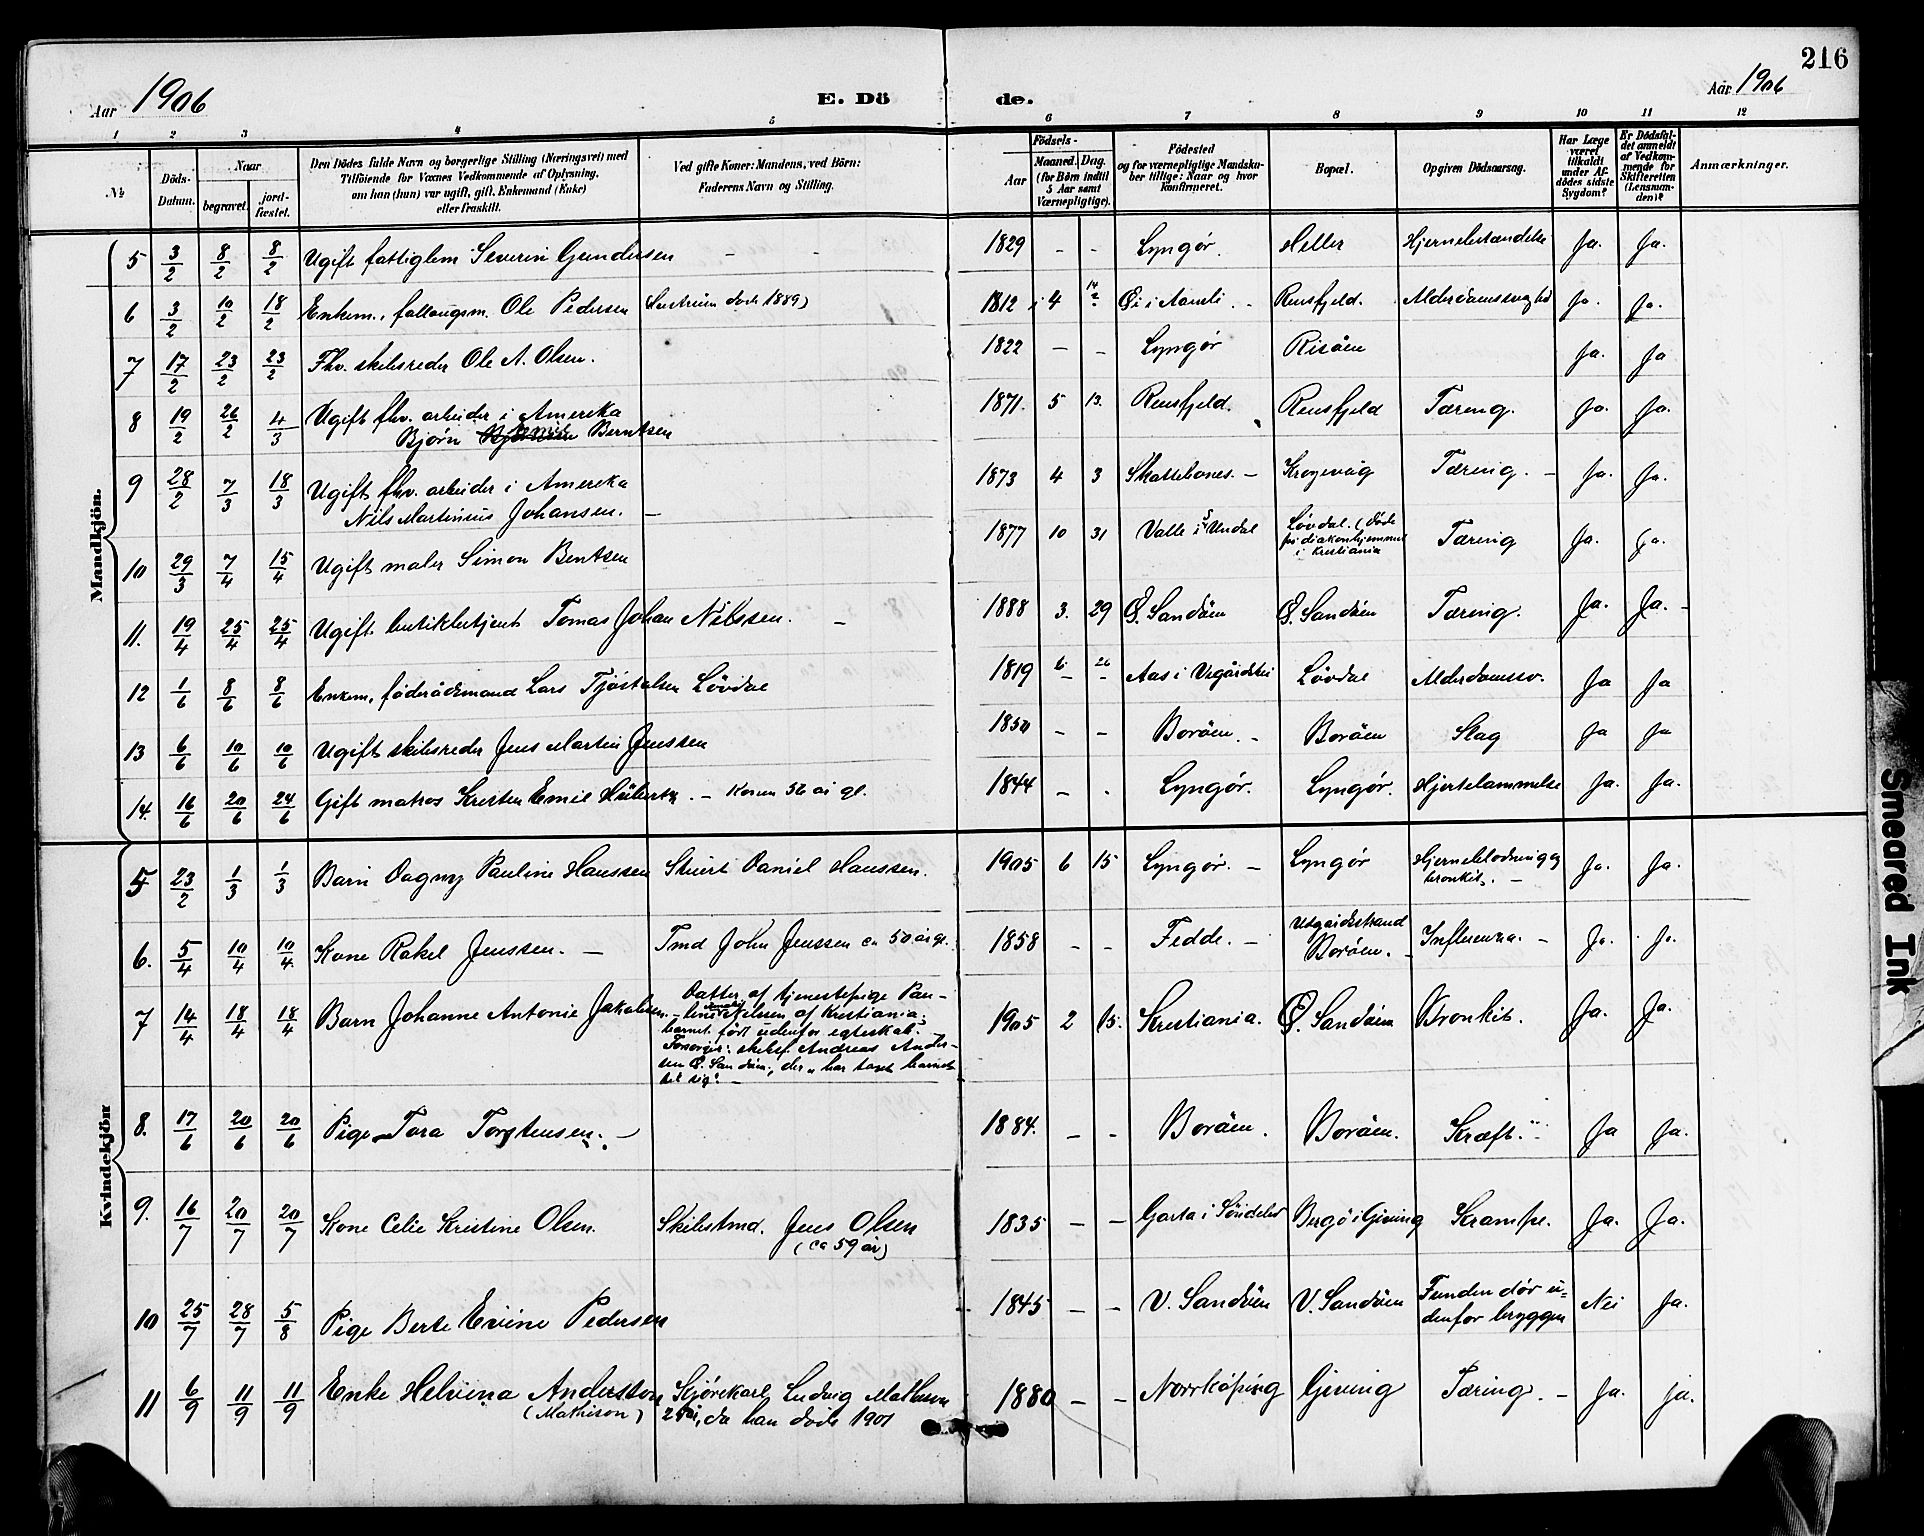 216
Aar 1906 E. Dö de. Aar 1906
1 2 3 4 5 6 7 8 9 10 11 12
No Döds-Datum. Naar begravet. jord-fæstet. Den Dödes fulde Navn og borgerlige Stilling (Næringsvei) med Tilföiende for Voxnes Vedkommende af Oplysning, om han (hun) var ugift, gift, Enkemand (Enke) eller fraskilt. Ved gifte Koner: Mandens, ved Börn: Faderens Navn og Stilling. Födsels- Aar Maaned. Dag. (for Börn indtil 5 Aar samt Værnepligtige). Födested og for værnepligtige Mandska-ber tillige: Naar og hvor konfirmeret. Bopæl. Opgiven Dödsaarsag. Har Læge været tilkaldt under Af-dödes sidste Sygdom? Er Dödsfal-det anmeldt af Vedkom-mende for Skifteretten (Lensman-den)? Anmærkninger.
Mandkjön.
5 3/2 8/2 8/2 Ugift fattiglem Severin Gundersen - - 1829 - - Lyngør. Heller Ja. Ja.
6 3/2 10/2 18/2 Enkem., Ole Pedersen (hustruen døde 1889) 1812 4 i Aamli - Rensfjeld. Alderdomssvaghed Ja. Ja.
7 17/2 23/2 23/2 Fhv. skibsreder Ole A. Olsen. 1822 - - Lyngør Risøen Ja. Ja
8 19/2 26/2 4/3 Ugift fhv. arbeider i Amerika
Bjørn Berntsen 1871. 5 13. Rensfjeld. Rensfjeld Tæring. Ja. Ja.
9 28/2 7/3 18/3 Ugift fhv. arbeider i Amerika
Nils Martinius Johansen. - 1873 4 3 Skottebones. - Krogevåg Tæring. - Ja. Ja.
10 29/3 7/4 15/4 Ugift maler Simon Bentsen 1877 10 31 Valle i S. Undal Løvdal. (døde
på diakonhjemmet
i Kristiania Tæring Ja. Ja.
11. 19/4 25/4 25/4 Ugift butikbetjent Tomas Johan Nilssen. - 1888 3. 29 Ø. Sandøen Ø. Sandøen Tæring. Ja. Ja. -
12 1/6 8/6 8/6 Enkem. føderådsmand Lars Tjøstolsen Løvdal 1819 6 26 Aas i Vegårdshei Løvdal Alderdomssv. Ja Ja
13 6/6 10/6 10/6 Ugift skibsreder Jens Martin Jenssen 1850 - - Borøen. - Borøen Slag Ja Ja
14. 16/6 20/6 24/6 Gift matros Kristen Emil . - Konen 56 år gl. 1844 - . Lyngør. Lyngør. Hjertelammelse Ja. Ja.
Kvindekjön
5 23/2 1/3 1/3 Barn Dagny Pauline Hanssen Stuert Daniel Hanssen. 1905 6 15 Lyngør. - Lyngør Hjerneblødning og
bronkit. - Ja. Ja.
6. 5/4 10/4 10/4 Kone Rakel Jenssen. - Tmd John Jenssen ca 50 år gl. 1858 - - Fedde. - Utgårdstrand
Borøen. Influenza. - Ja. Ja.
7 14/4 18/4 18/4 Barn Johanne Antonie Jakobsen. Datter af tjenestepige Pau-
line Nilsen af Kristiania,
barnet født udenfor egteskab. -
Forsørger: skibsf. Andreas Ander-
sen Ø. Sandøen, der "har taget barnet
til sig". - 1905 2 15. Kristiania. Ø. Sandøen Bronkit. Ja. Ja.
8. 17/6 20/6 20/6 Pige Tora Torstensen. - 1884. - - Borøen. Borøen. Kræft. Ja Ja.
9. 16/7 20/7 20/7 Kone Celie Kristine Olsen. Skibstmd. Jens Olsen
(ca 59 år) 1835 - - Garta i Søndeled Bergø i Gjeving Krampe. Ja. Ja.
10 25/7 28/7 5/8 Pige Berte Evine Pedersen 1845 - - V. Sandøen V. Sandøen Funden død u-
denfor bryggen Nei Ja.
11 6/9 11/9 11/9 Enke Helvina Andersson
(Mathison) Kjørekarl Ludvig Mathison
25 år, da han døde 1901 1880 - - Norrköping Gjeving Tæring. - Ja. Ja.
Smeared Ink